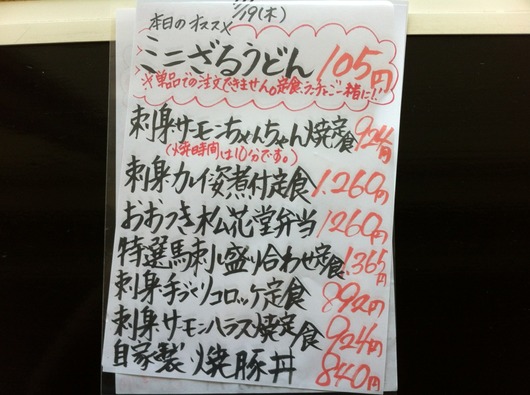 本日のオススメ /19(木)
ミニざるうどん 105円
※単品での注文できません。定食、ランチとご一緒に!!
刺身サーモンちゃんちゃん焼定食 924円
(焼時間は10分です。)
刺身カレイ姿煮付定食 1.260円
おおつき松花堂弁当 1260円
特選馬刺し盛り合わせ定食 1.365円
刺身手づくりコロッケ定食 892円
刺身サーモンハラス焼定食 924円
自家製焼豚丼 840円